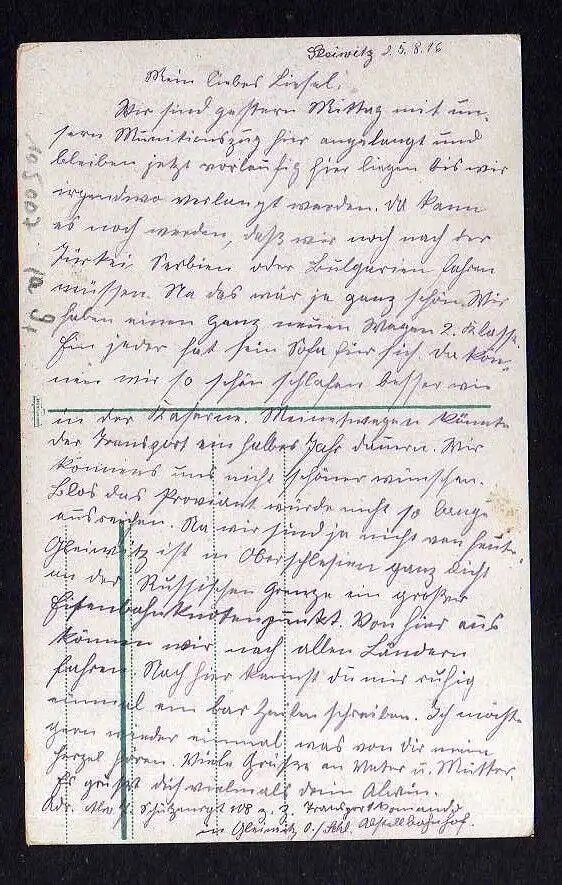 Gleiwitz 25.8.16
Mein liebes Liesel!
Wir sind gestern Mittag mit un-
serm Munitionszug hier angelangt und
bleiben jetzt vorläufig hier liegen bis wir
irgendwo verlangt werden. Da kann
es noch werden, daß wir noch nach der
Türkei, Serbien oder Bulgarien fahren
müssen. Na das wär ja ganz schön. Wir
haben einen ganz neuen Wagen 2. Klasse.
Ein jeder hat sein Sofa für sich. Da kön-
nen wir so schön schlafen besser wie
in der Kaserne. Meinetwegen könnte
der Transport ein halbes Jahr dauern. Wir
könnens uns nicht schöner wünschen.
Blos das Proviant würde nicht so lange
ausreichen. Na wir sind ja nicht von heute.
Gleiwitz ist in Oberschlesien ganz dicht
an der Russischen Grenze ein großer
Eisenbahnknotenpunkt. Von hier aus
können wir nach allen Ländern
fahren. Nach hier kannst du mir ruhig
einmal ein bar Zeilen schreiben. Ich möcht
gern wieder einmal was von dir mein
Herzel hören. Viele Grüße an Vater u. Mutter.
Es grüßt dich vielmals dein Alwin.
Adr. Alw. Schützenrgt 108 z. Z. Transportkomando
in Gleiwitz O./Schl. Abstellbahnhof.
105007